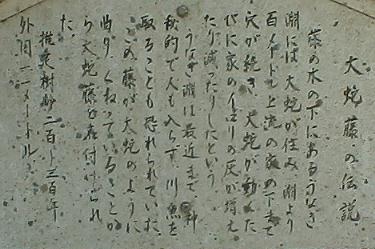 大蛇藤の伝説
藤の木の下にあるうなぎ
淵には大蛇が住み、淵より
百メートル上流の家の下まで
穴が続き、大蛇が動くた
びに家のイロリの灰が増え
たり減ったりしたという。
うなぎ淵は最近まで神
秘的で人も入らず、川魚を
取ることも恐れられていた。
この藤が大蛇のように
曲りくねっていることか
ら大蛇藤と名付けられ
た。
推定樹齢二百~三百年
外周一二メートル